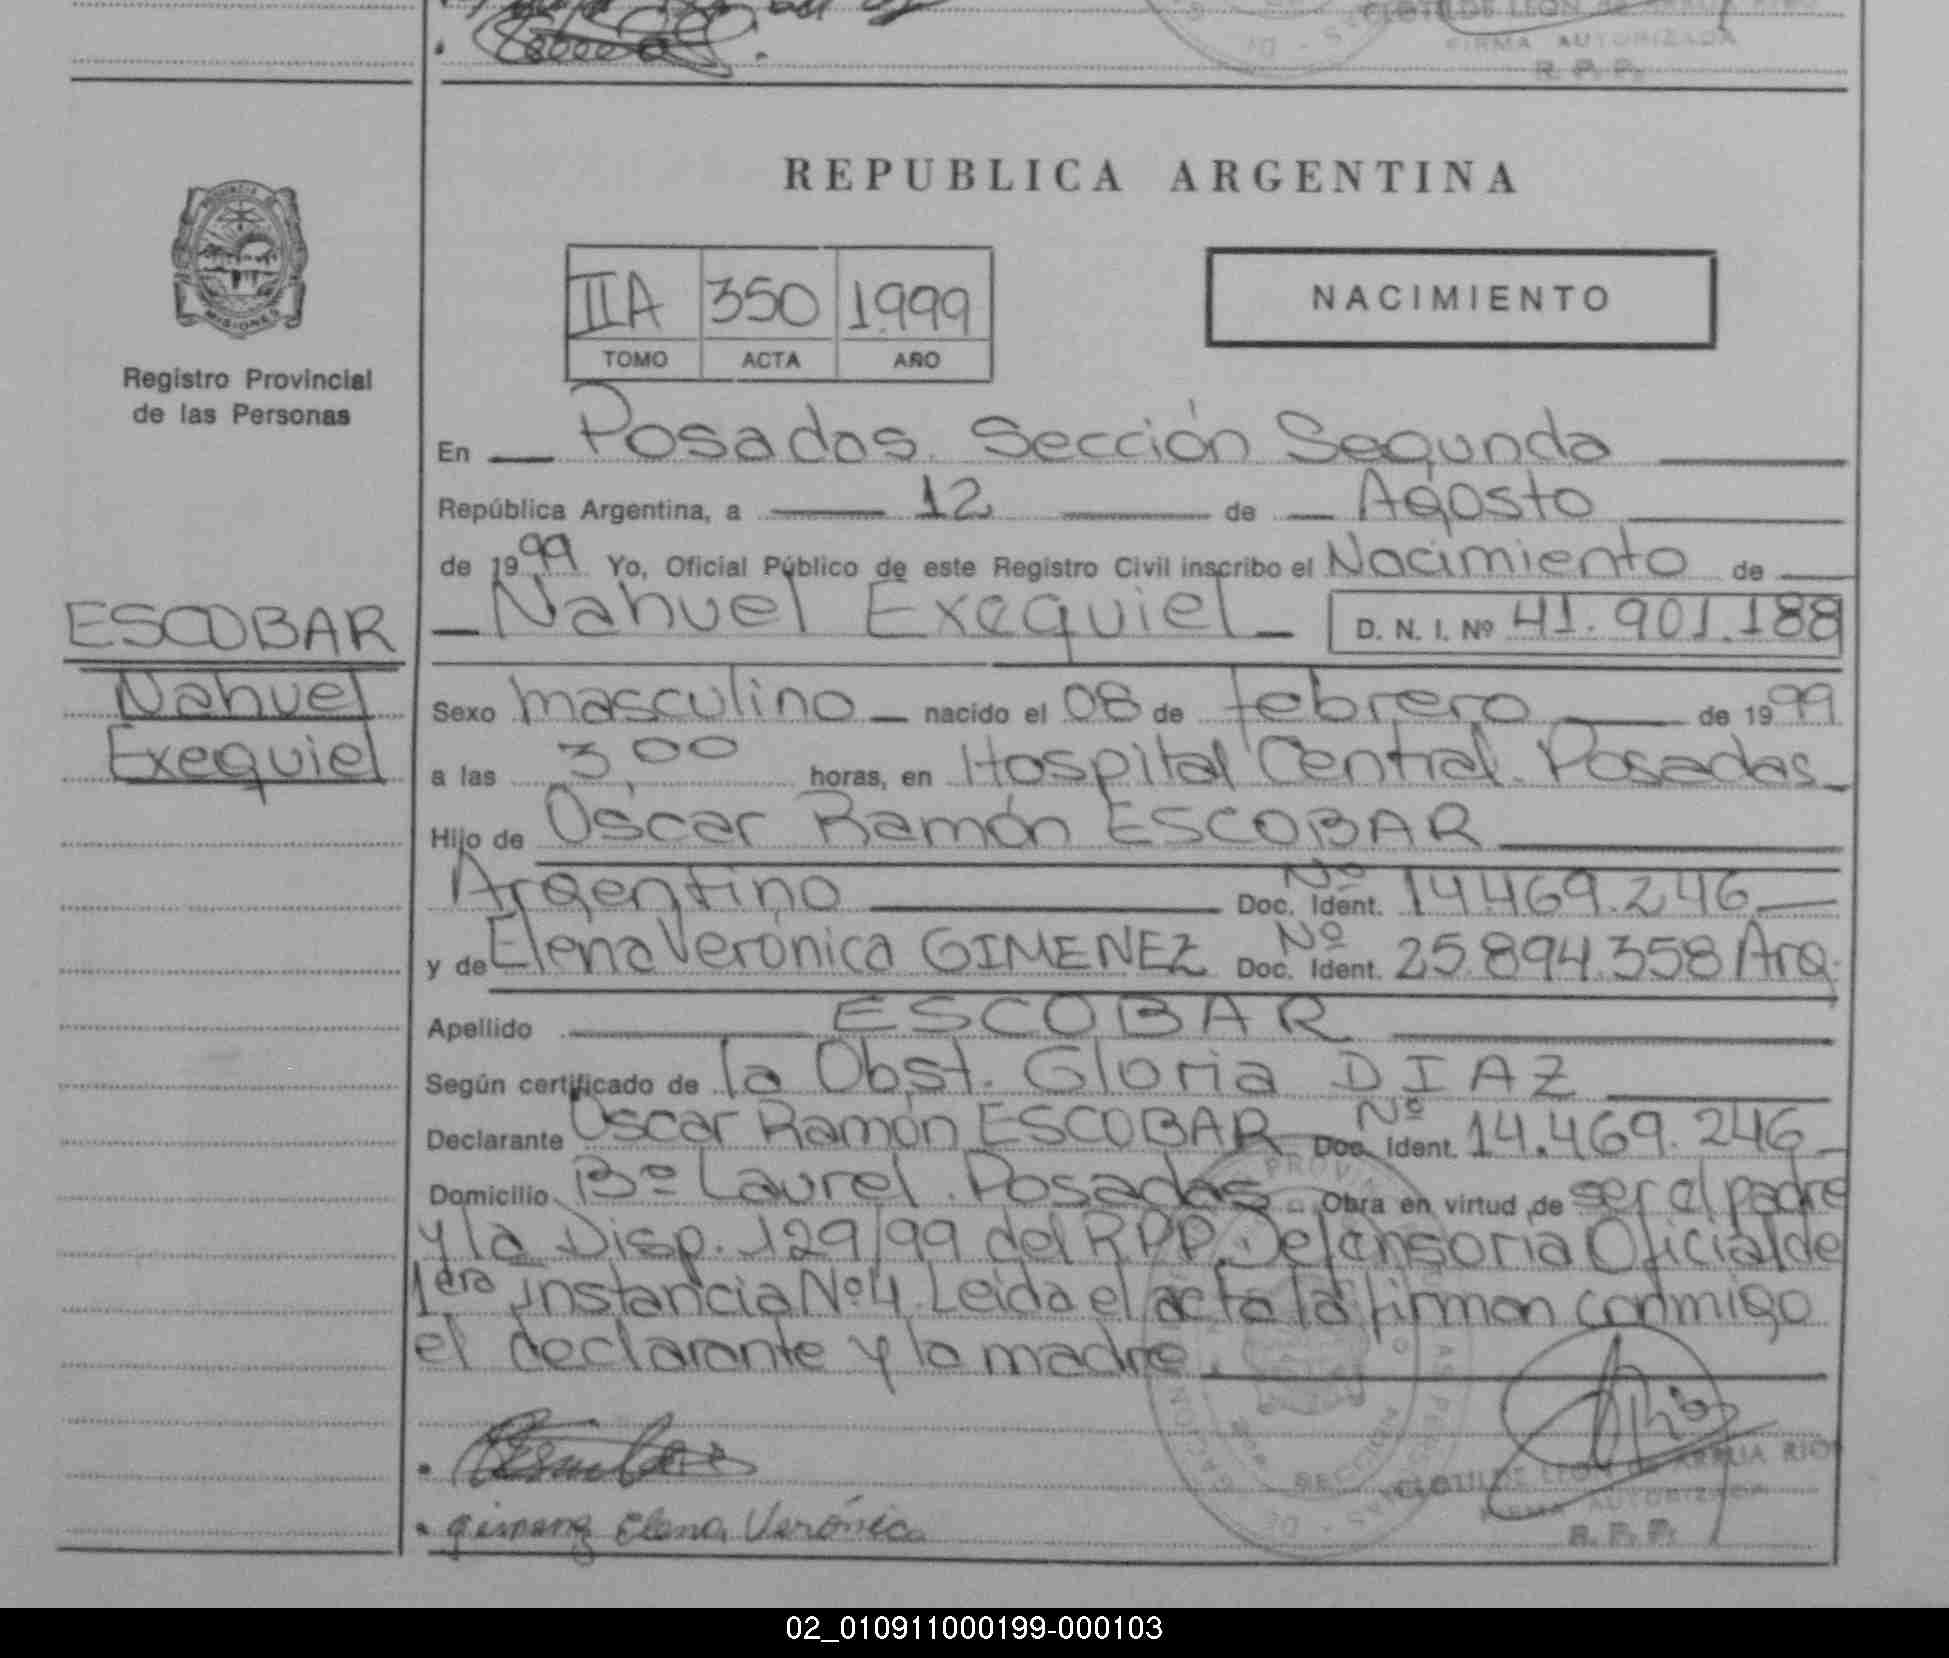 CLOTILDE LEON de ARRUA RIOS
FIRMA AUTORIZADA
R. P. P.
REPUBLICA ARGENTINA
PROVINCIA
MISIONES
Registro Provincial
de las Personas
IIA 350 1.999
TOMO ACTA AÑO
NACIMIENTO
En Posadas. Sección Segunda
República Argentina, a 12 de Agosto
de 1999 Yo, Oficial Público de este Registro Civil inscribo el Nacimiento de
Nahuel Exequiel D. N. I. Nº 41.901.188
ESCOBAR
Nahuel
Exequiel
Sexo masculino nacido el 08 de febrero de 1999
a las 3,00 horas, en Hospital Central. Posadas
Hijo de Oscar Ramón ESCOBAR
Argentino Doc. Ident. Nº 14.469.246
y de Elena Verónica GIMENEZ Doc. Ident. Nº 25.894.358 Arg.
Apellido ESCOBAR
Según certificado de la Obst. Gloria DIAZ
Declarante Oscar Ramón ESCOBAR Doc. Ident. Nº 14.469.246
Domicilio Bº Laurel. Posadas Obra en virtud de ser el padre
y la Disp. 129/99 del RPP. Defensoria Oficial de
1era instancia Nº4. Leida el acta la firman conmigo
el declarante y la madre.
gimenez Elena Verónica
CLOTILDE LEON de ARRUA RIOS
FIRMA AUTORIZADA
R. P. P.
02_010911000199-000103